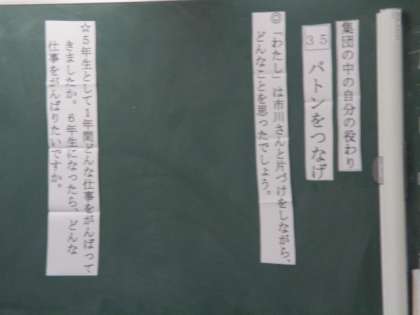 集団の中の自分の役わり
35 バトンをつなげ
◎「わたし」は市川さんと片づけをしながら、
どんなことを思ったでしょう。
☆5年生として1年間どんな仕事をがんばって
きましたか。6年生になったら、どんな
仕事をがんばりたいですか。